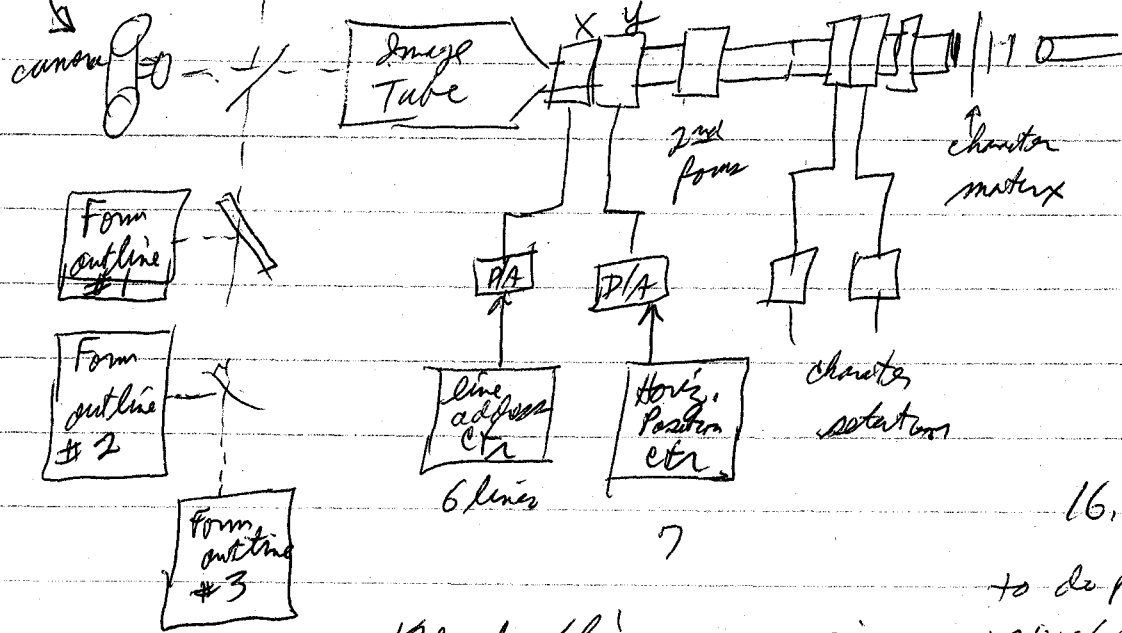 camera
Image
Tube
X
Y
2nd
focus
character
matrix
Form
outline
#1
D/A
D/A
Form
outline
#2
line
address
Ctr
Horiz.
Position
Ctr
character
selection
6 lines
7
Form
outline
#3
16.
to do p